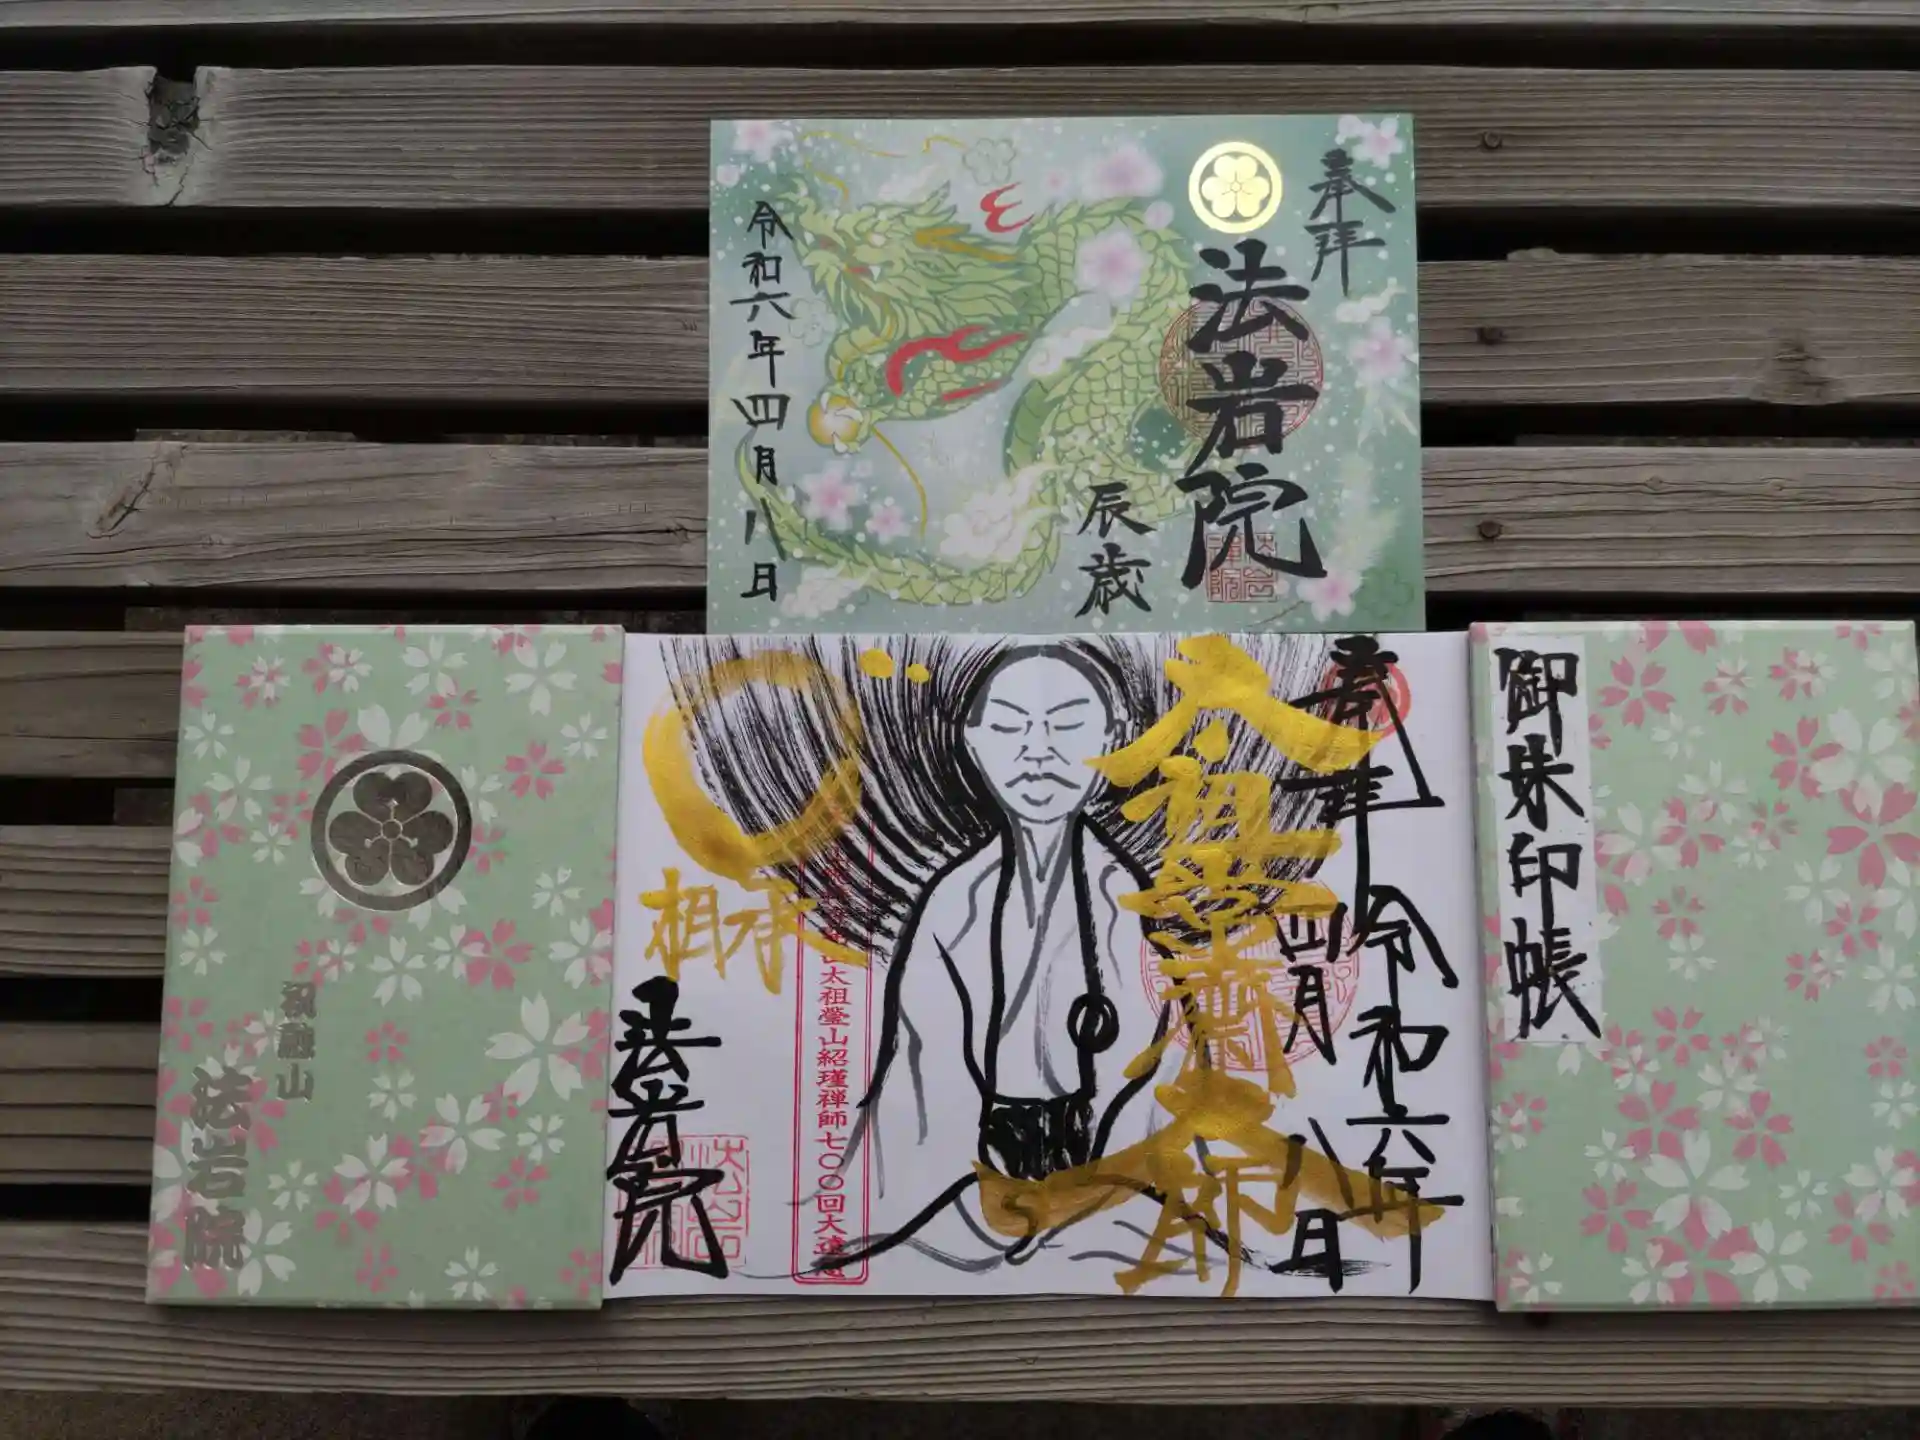 奉拝
法岩院
辰歳
令和六年四月八日
御朱印帳
奉拝
令和六年
四月八日
太祖常済大師
太祖瑩山紹瑾禅師七〇〇回大遠忌
相承
法岩院
祝融山
法岩院